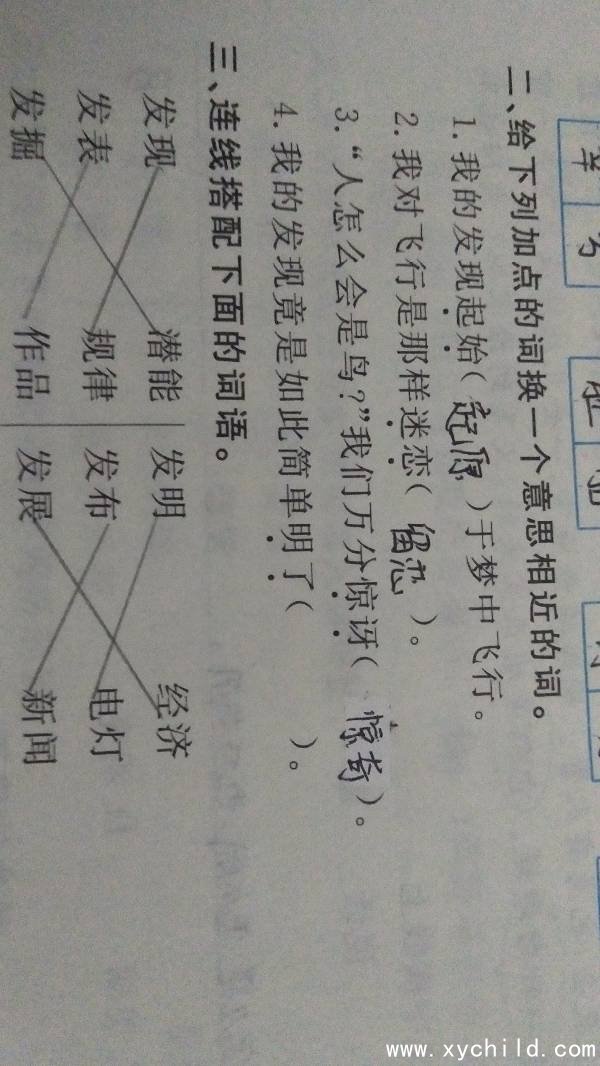 二、给下列加点的词换一个意思相近的词。
1. 我的发现起始(起源)于梦中飞行。
2. 我对飞行是那样迷恋(留恋)。
3. “人怎么会是鸟?”我们万分惊讶(惊奇)。
4. 我的发现竟是如此简单明了( )。
三、连线搭配下面的词语。
发现 潜能 发明 经济
发表 规律 发布 电灯
发掘 作品 发展 新闻
www.xychild.com